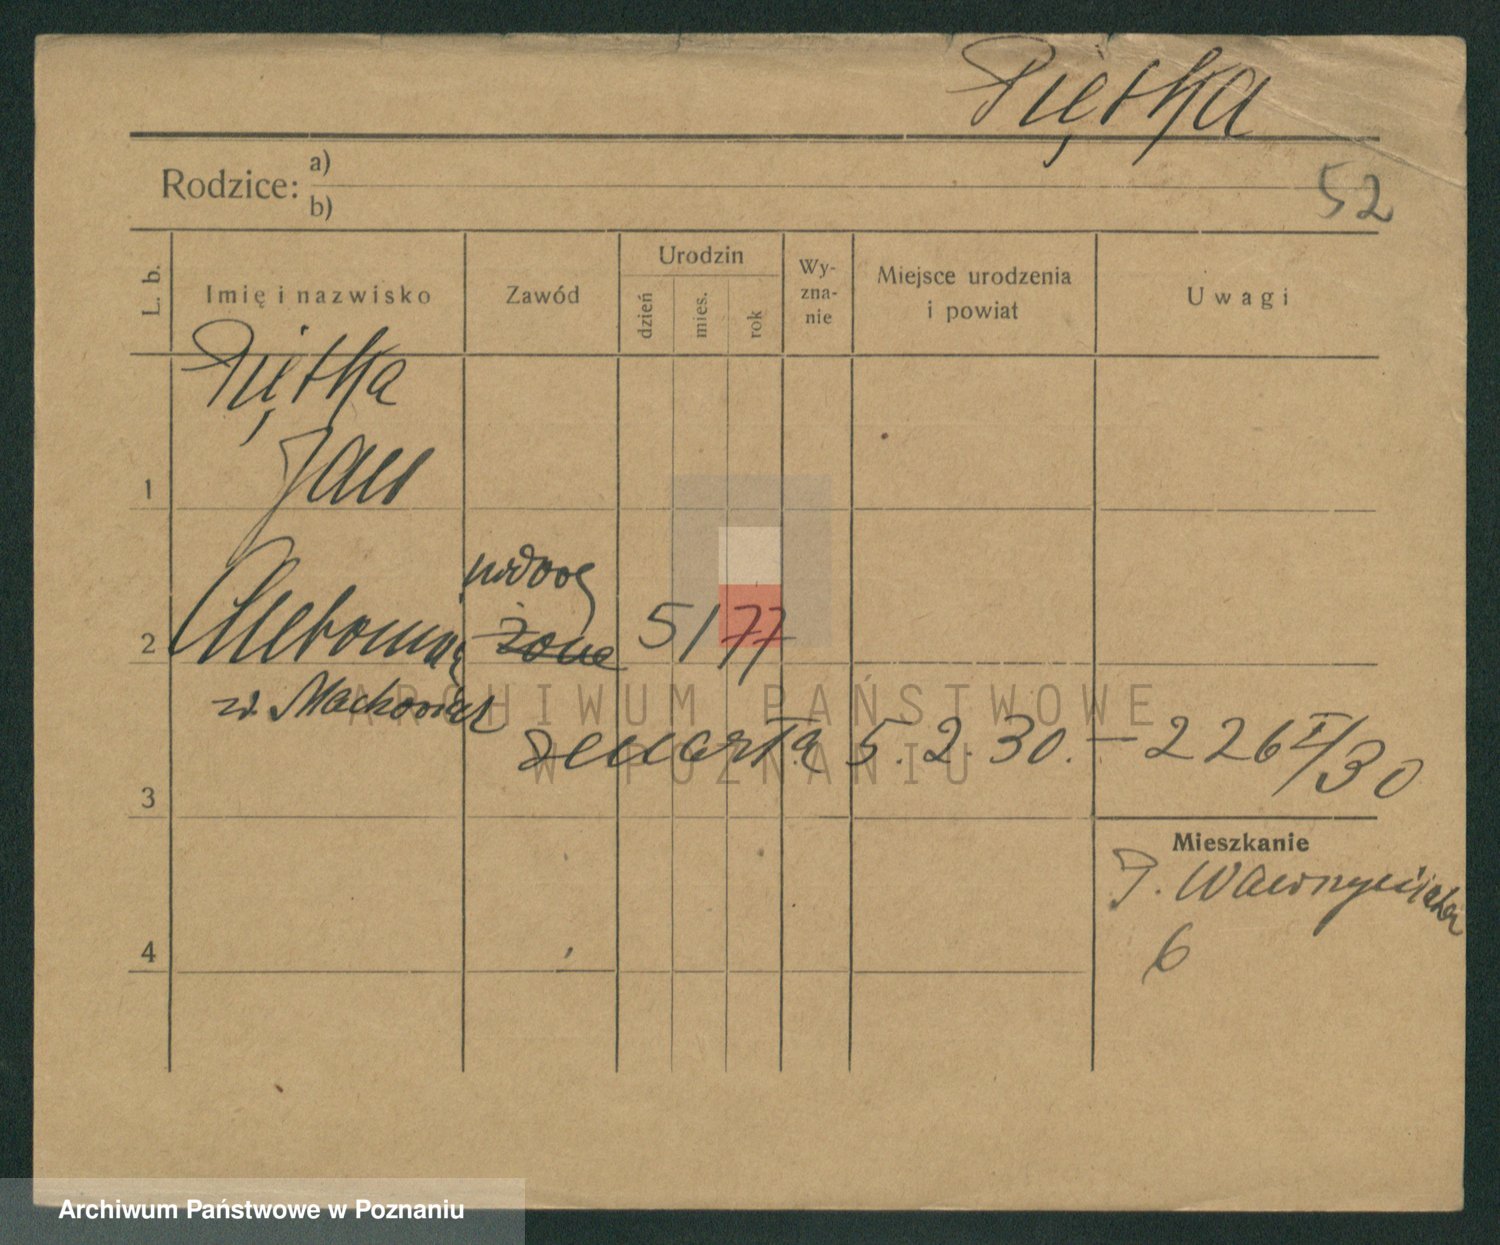 Piętka
Rodzice: a)
b)
52
L. b.
Imię i nazwisko
Zawód
Urodzin
dzień
mies.
rok
Wy-
zna-
nie
Miejsce urodzenia
i powiat
Uwagi
Piętka
Jan
1
wdova
2
żona
5/77
z d. Maćkowiak
zmarła 5.2.30. — 226 I/30
3
Mieszkanie
P. Wawrzyńca
6
4
ARCHIWUM PAŃSTWOWE
W POZNANIU
Archiwum Państwowe w Poznaniu